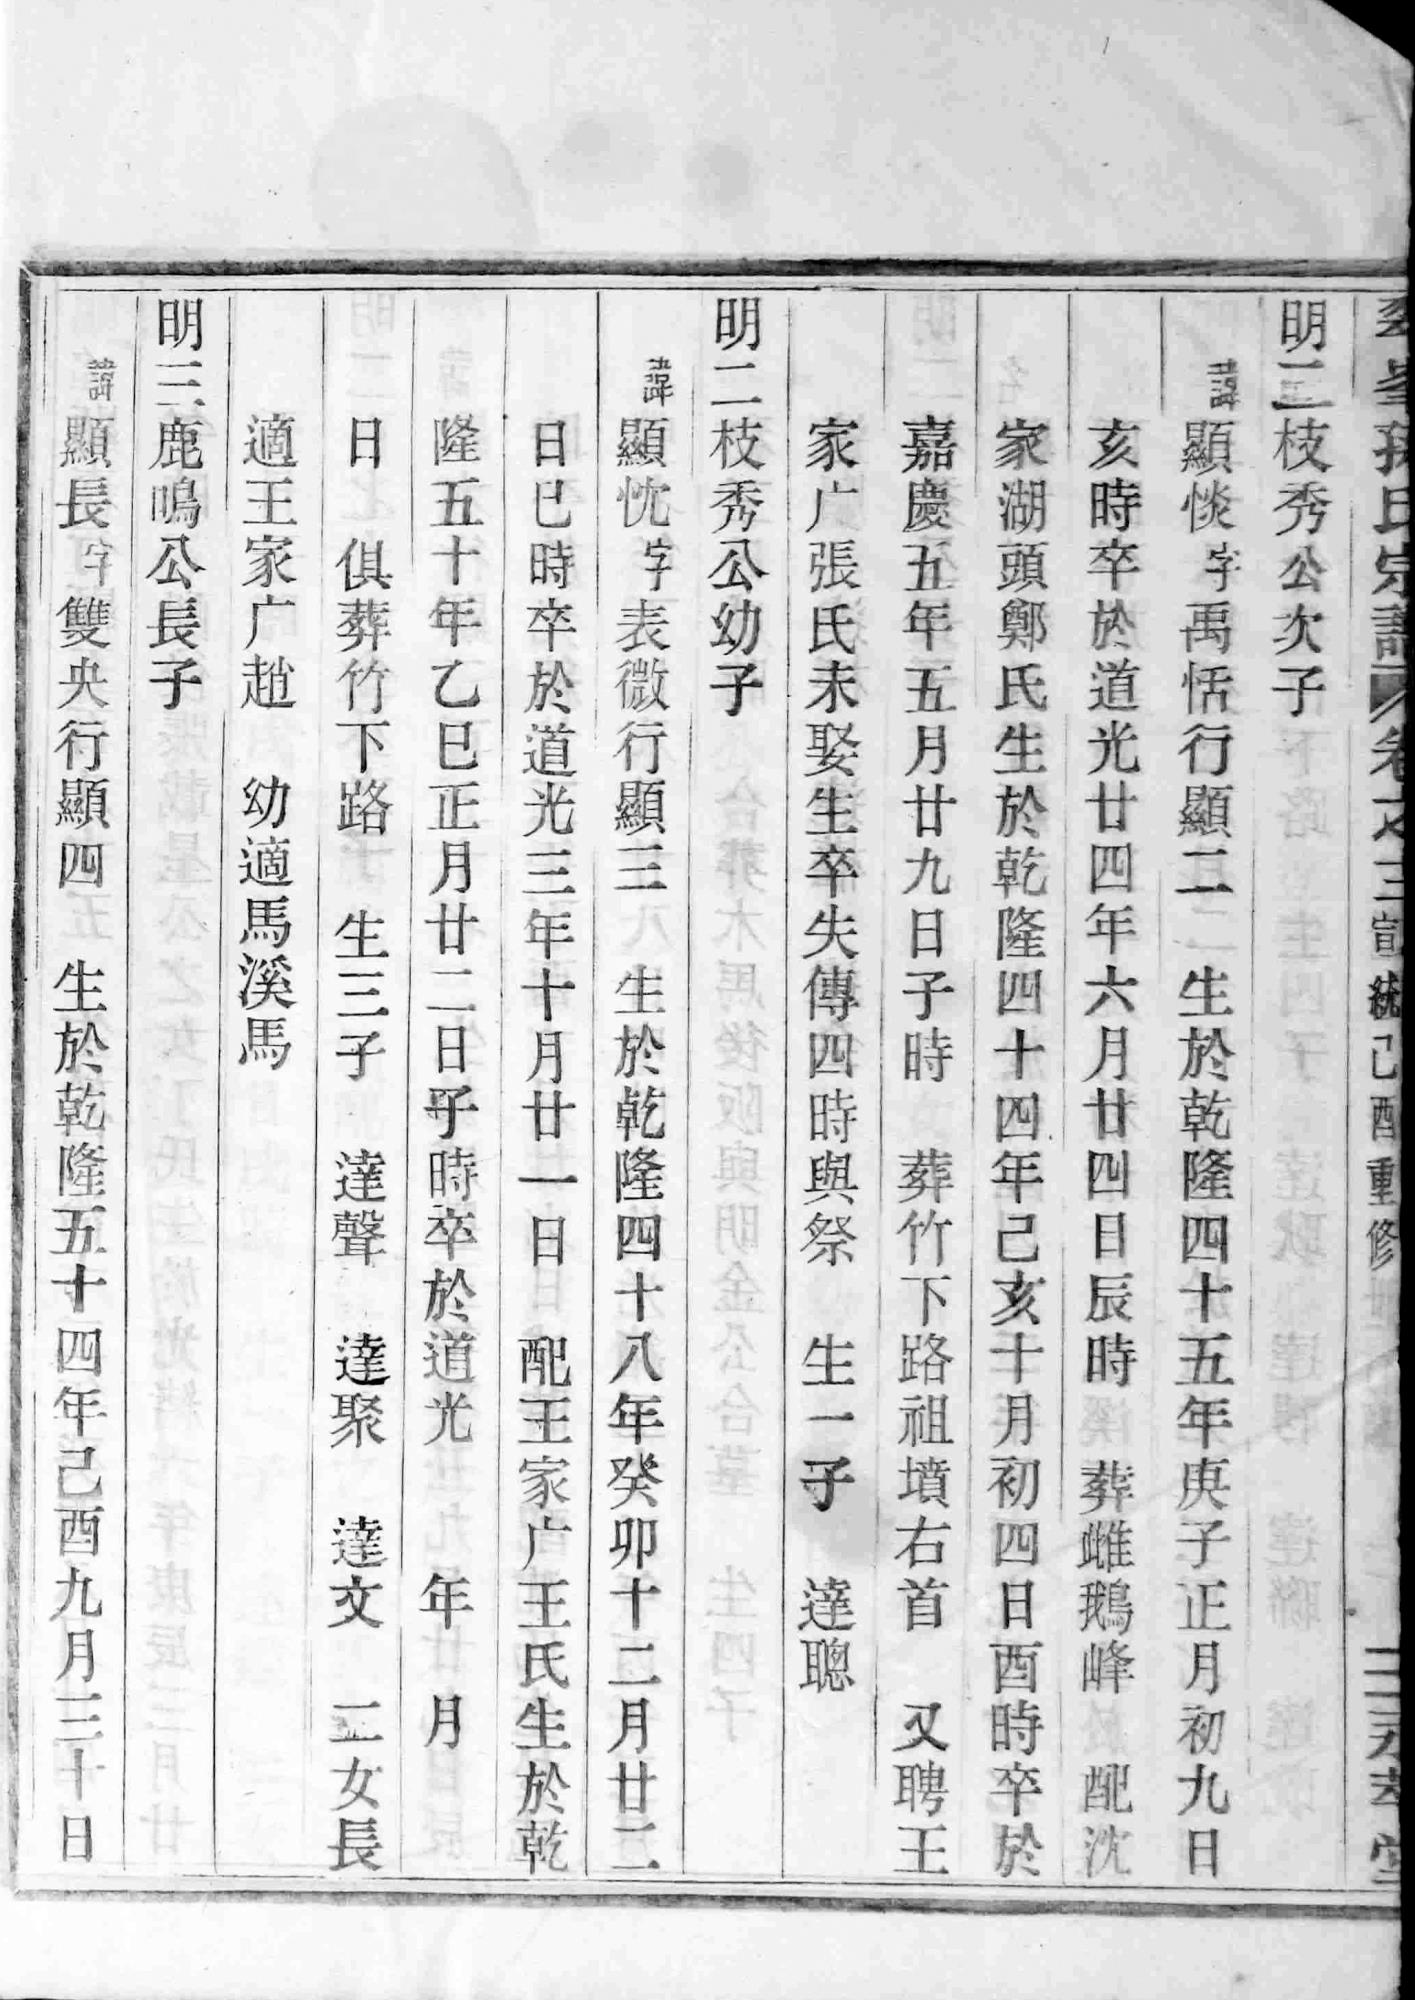 孫氏宗譜 卷之三 宣統己酉重修
明二枝秀公次子
諱顯惔字禹恬行顯二 生於乾隆四十五年庚子正月初九日
亥時卒於道光廿四年六月廿四日辰時 葬雌鵝峰 配沈
家湖頭鄭氏生於乾隆四十四年己亥十月初四日酉時卒於
嘉慶五年五月廿九日子時 葬竹下路祖墳右首 又聘王
家广張氏未娶生卒失傳四時與祭 生一子 達聰
明二枝秀公幼子
諱顯忱字表微行顯三 生於乾隆四十八年癸卯十二月廿二
日巳時卒於道光三年十月廿一日 配王家广王氏生於乾
隆五十年乙巳正月廿二日子時卒於道光 年 月
日 俱葬竹下路 生三子 達聲 達聚 達文 二女長
適王家广趙 幼適馬溪馬
明三鹿鳴公長子
諱顯長字雙央行顯四 生於乾隆五十四年己酉九月三十日